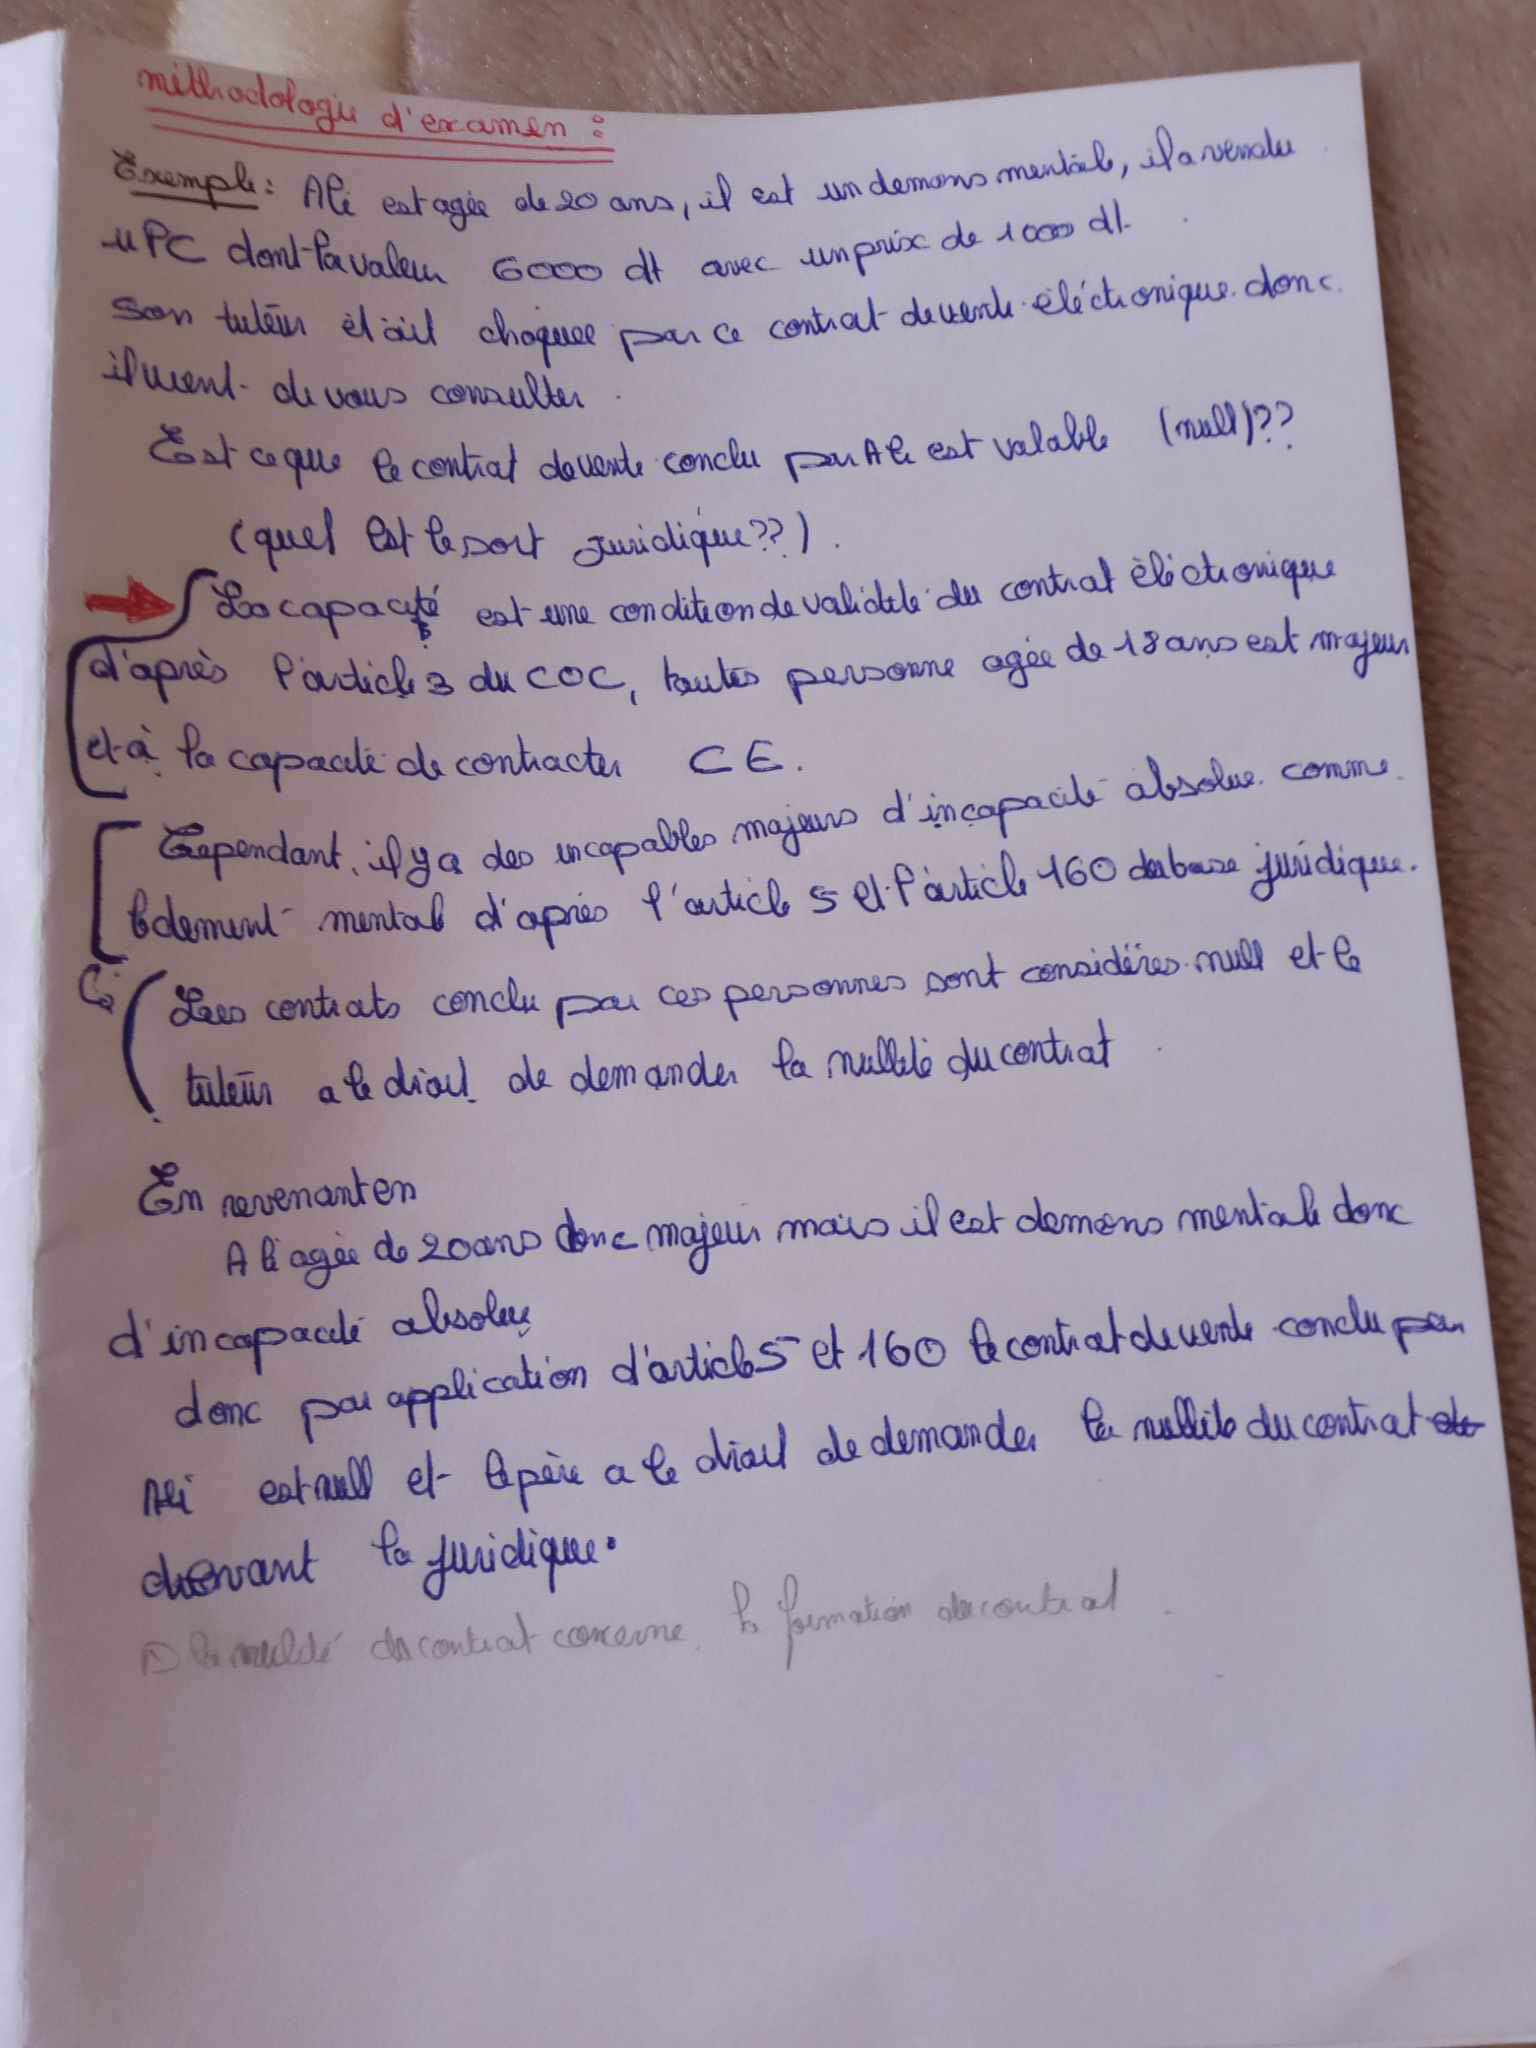 méthodologie d'examen :
Exemple : Ali est agée de 20 ans, il est un demons mentale, il a vendu
u PC dont la valeur 6000 dt avec un prix de 1000 dt.
Son tuteur était choquée par ce contrat de vente éléctronique. donc
il vient de vous consulter.
Est ce que le contrat de vente conclu par Ali est valable (null)??
(quel est le sort juridique??).
La capacité est une condition de validité du contrat éléctronique
d'après l'article 3 du COC, toutes personne agée de 18 ans est majeur
et à la capacité de contracter CE.
Cependant, il y a des incapables majeurs d'incapacité absolue comme
le dement mental d'après l'article 5 et l'article 160 du base juridique.
Les contrats conclu par ces personnes sont considéres null et le
tuteur a le droit de demander la nullité du contrat.
En revenant en
Ali agée de 20 ans donc majeur mais il est demons mentale donc
d'incapacité absolue
donc par application d'article 5 et 160 le contrat de vente conclu par
Ali est null et le père a le droit de demander la nullité du contrat
devant la juridique.
la nullité du contrat concerne la formation du contrat.